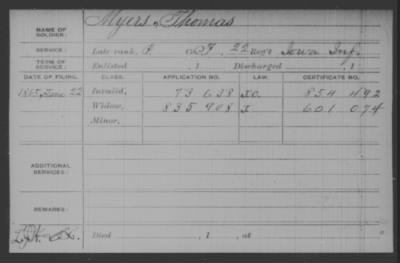 NAME OF SOLDIER: Myers, Thomas
SERVICE: Late rank, P. Co. F, 22 Reg't Iowa Inf.
TERM OF SERVICE: Enlisted , 1 Discharged , 1
DATE OF FILING. CLASS. APPLICATION NO. LAW. CERTIFICATE NO.
1865 22 Invalid, 73 638 854 492
Widow, 835 908 601 074
Minor,
ADDITIONAL SERVICES:
REMARKS:
Died , 1 , at